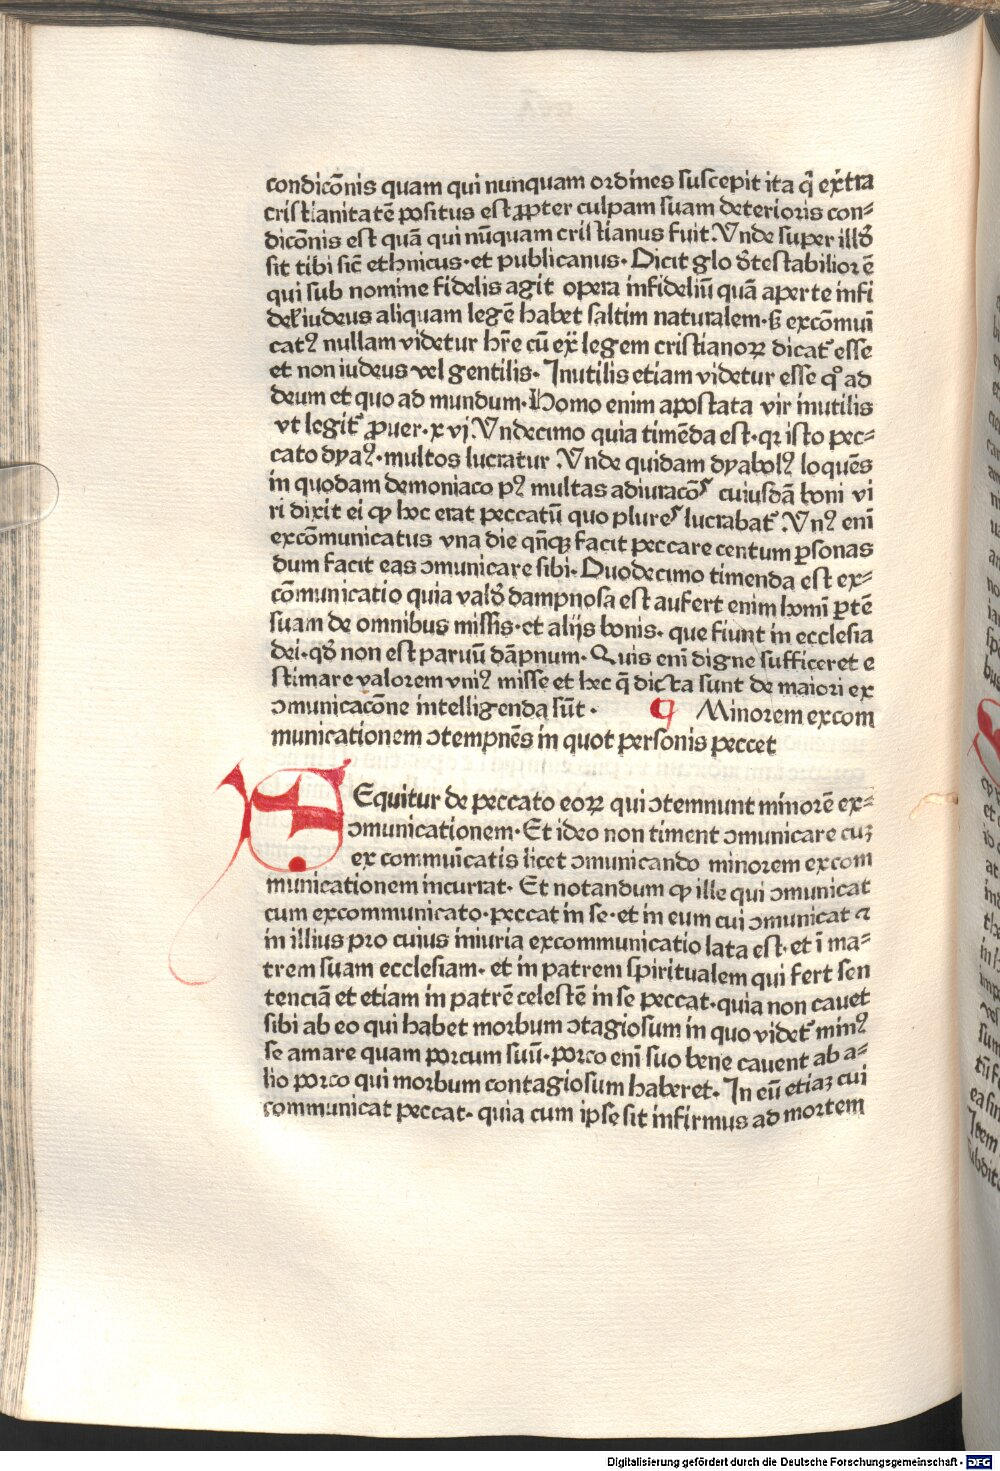 condicōnis quam qui nunquam ordines suscepit ita ꝙ extra
cristianitatē positus est ꝓpter culpam suam deterioris con⸗
dicōnis est quā qui nūquam cristianus fuit. Vnde super illḋ
sit tibi sič ethnicus·et publicanus· Dicit glo ḋtestabilior ē
qui sub nomine fidelis agit opera infideliū quā aperte infi
del̕ iudeus aliquam legē habet saltim naturalem· excōmūi
catꝰ nullam videtur hr̄e cū ex̄ legem cristianoꝝ dicat᷑ esse
et non iudeus vel gentilis· Inutilis etiam videtur esse qͦ ad
deum et quo ad mundum· Homo enim apostata vir inutilis
vt legit᷑ ꝓuer·xvj. Vndecimo quia timēda est·qꝛ isto pec⸗
cato dyaꝰ·multos lucratur Vnde quidam dyabolꝰ loquēs
in quodam demoniaco pꝰ multas adiuracōs cuiusdā boni vi
ri dixit ei ꝙ hec erat peccatū quo plures lucrabat᷑ Vnꝰ enī
excōmunicatus vna die qn̄qꝫ facit peccare centum ꝑsonas
dum facit eas ꝯmunicare sibi· Duodecimo timenda est ex⸗
cōmunicatio quia valḋ dampnosa est aufert enim homī ꝑtē
suam de omnibus missis·et alijs bonis· que fiunt in ecclesia
dei·qḋ non est paruū dāpnum· Quis enī digne sufficeret e
stimare valorem vniꝰ misse et hec q̄ dicta sunt de maiori ex
ꝯmunicacōne intelligenda sūt· ¶ Minorem excom
municationem ꝯtempnēs in quot personis peccet
SEquitur de peccato eoꝝ qui ꝯtemnunt minorē ex⸗
ꝯmunicationem· Et ideo non timent ꝯmunicare cuꝫ
excommūicatis licet ꝯmunicando minorem excom
municationem incurrat· Et notandum ꝙ ille qui ꝯmunicat
cum excommunicato·peccat in se·et in eum cui ꝯmunicat ⁊
in illius pro cuius iniuria excommunicatio lata est·et ī ma⸗
trem suam ecclesiam· et in patrem spiritualem qui fert sen
tenciā et etiam in patrē celestē in se peccat·quia non cauet
sibi ab eo qui habet morbum ꝯtagiosum in quo videt᷑ minꝰ
se amare quam porcum suū·porco enī suo bene cauent ab a⸗
lio porco qui morbum contagiosum haberet· In eū etiaꝫ cui
communicat peccat· quia cum ipse sit infirmus ad mortem
Digitalisierung gefördert durch die Deutsche Forschungsgemeinschaft - DFG